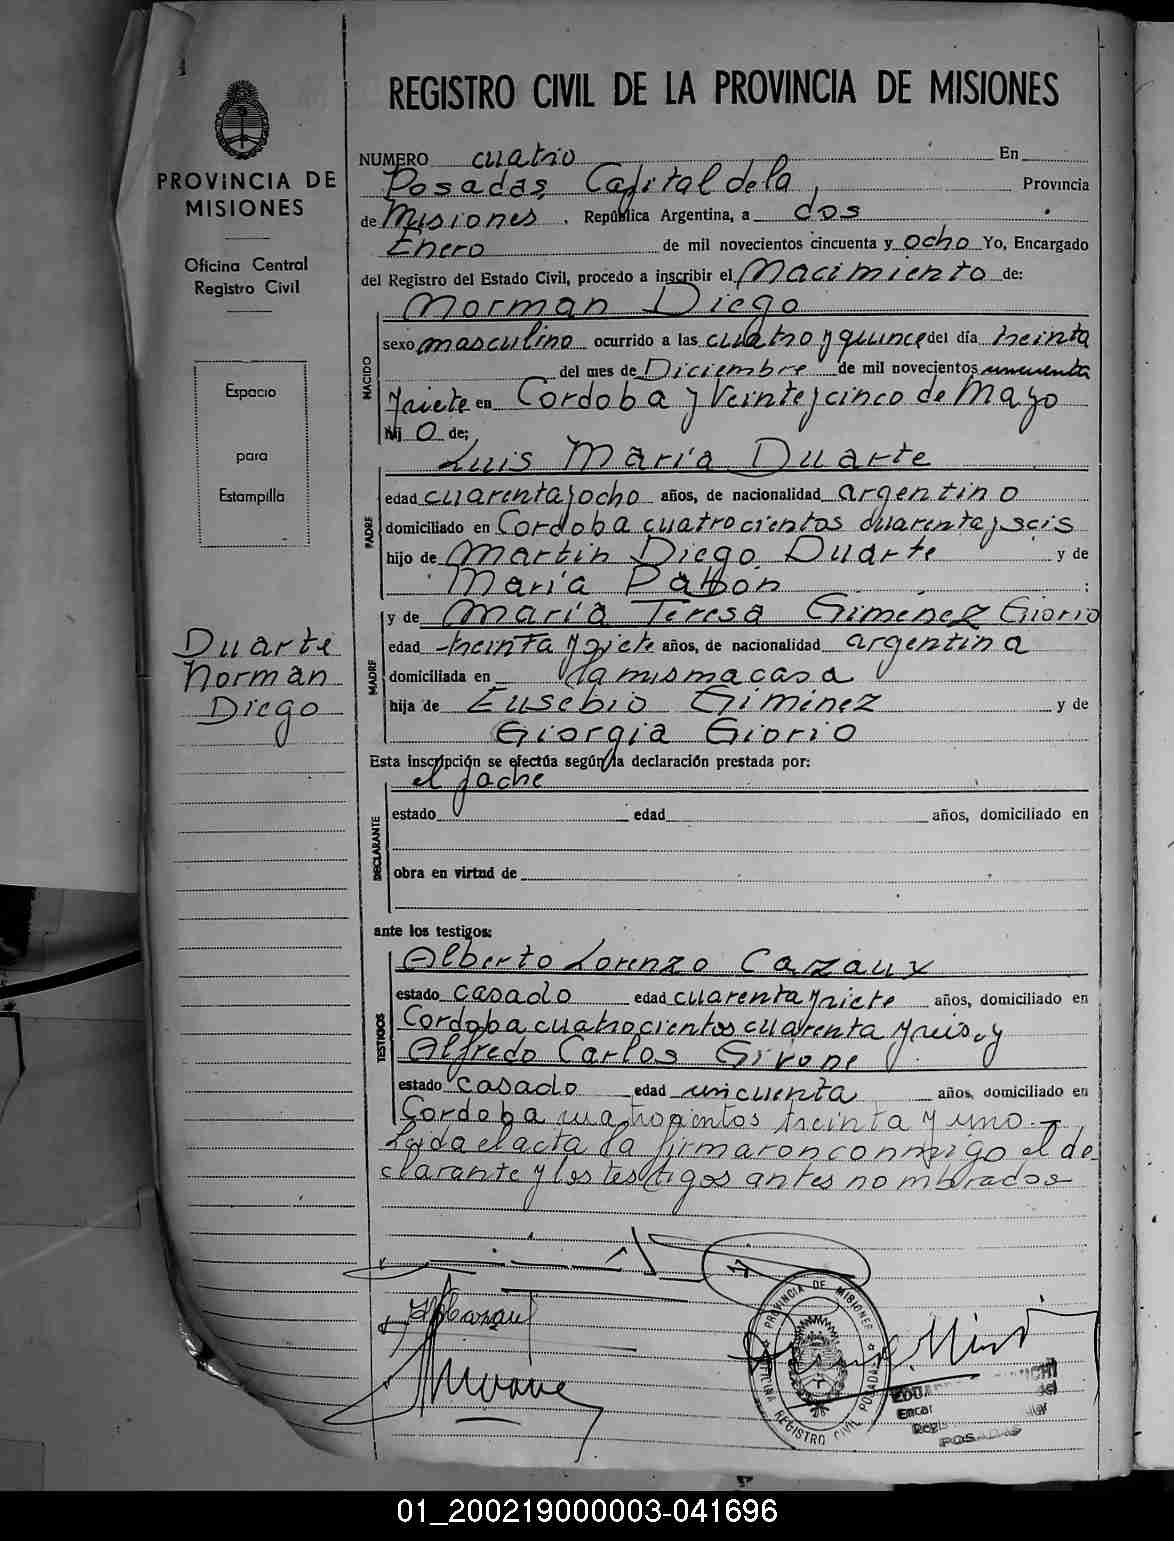 REGISTRO CIVIL DE LA PROVINCIA DE MISIONES
PROVINCIA DE
MISIONES
Oficina Central
Registro Civil
Espacio
para
Estampilla
Duarte
Norman
Diego
NUMERO cuatro En
Posadas, Capital de la, Provincia
de Misiones. República Argentina, a dos
Enero de mil novecientos cincuenta y ocho Yo, Encargado
del Registro del Estado Civil, procedo a inscribir el Nacimiento de:
Norman Diego
NACIDO
sexo masculino ocurrido a las cuatro y quince del día treinta
del mes de Diciembre de mil novecientos cincuenta
y siete en Cordoba y Veinte y cinco de Mayo
hij o de;
Luis María Duarte
PADRE
edad cuarenta y ocho años, de nacionalidad argentino
domiciliado en Cordoba cuatrocientos cuarenta y seis
hijo de Martin Diego Duarte y de
María Pabón ;
MADRE
y de María Teresa Giménez Giorio
edad treinta y siete años, de nacionalidad argentina
domiciliada en la misma casa
hija de Eusebio Giménez y de
Giorgia Giorio
Esta inscripción se efectúa según la declaración prestada por:
el padre
DECLARANTE
estado edad años, domiciliado en
obra en virtud de
ante los testigos:
TESTIGOS
Alberto Lorenzo Cazaux
estado casado edad cuarenta y siete años, domiciliado en
Cordoba cuatrocientos cuarenta y seis, y
Alfredo Carlos Girone
estado casado edad cincuenta años, domiciliado en
Cordoba cuatrocientos treinta y uno.-
Leída el acta la firmaron conmigo el de-
clarante y los testigos antes nombrados
PROVINCIA DE MISIONES
OFICINA REGISTRO CIVIL POSADAS
POSADAS
01_200219000003-041696